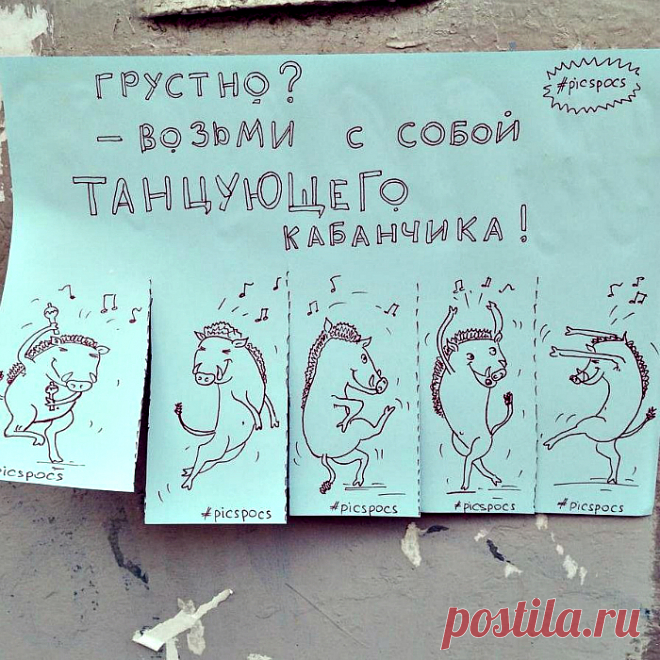 ГРУСТНО?
#picspocs
– ВОЗЬМИ С СОБОЙ
ТАНЦУЮЩЕГО
КАБАНЧИКА!
picspocs
#picspocs
#picspocs
#picspocs
#picspocs
postila.ru